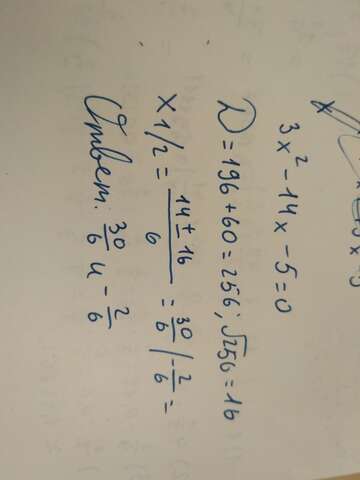 3x² - 14x - 5 = 0
D = 196 + 60 = 256; √256 = 16
x 1/2 = (14 ± 16)/6 = 30/6 / -2/6 =
Ответ: 30/6 и - 2/6